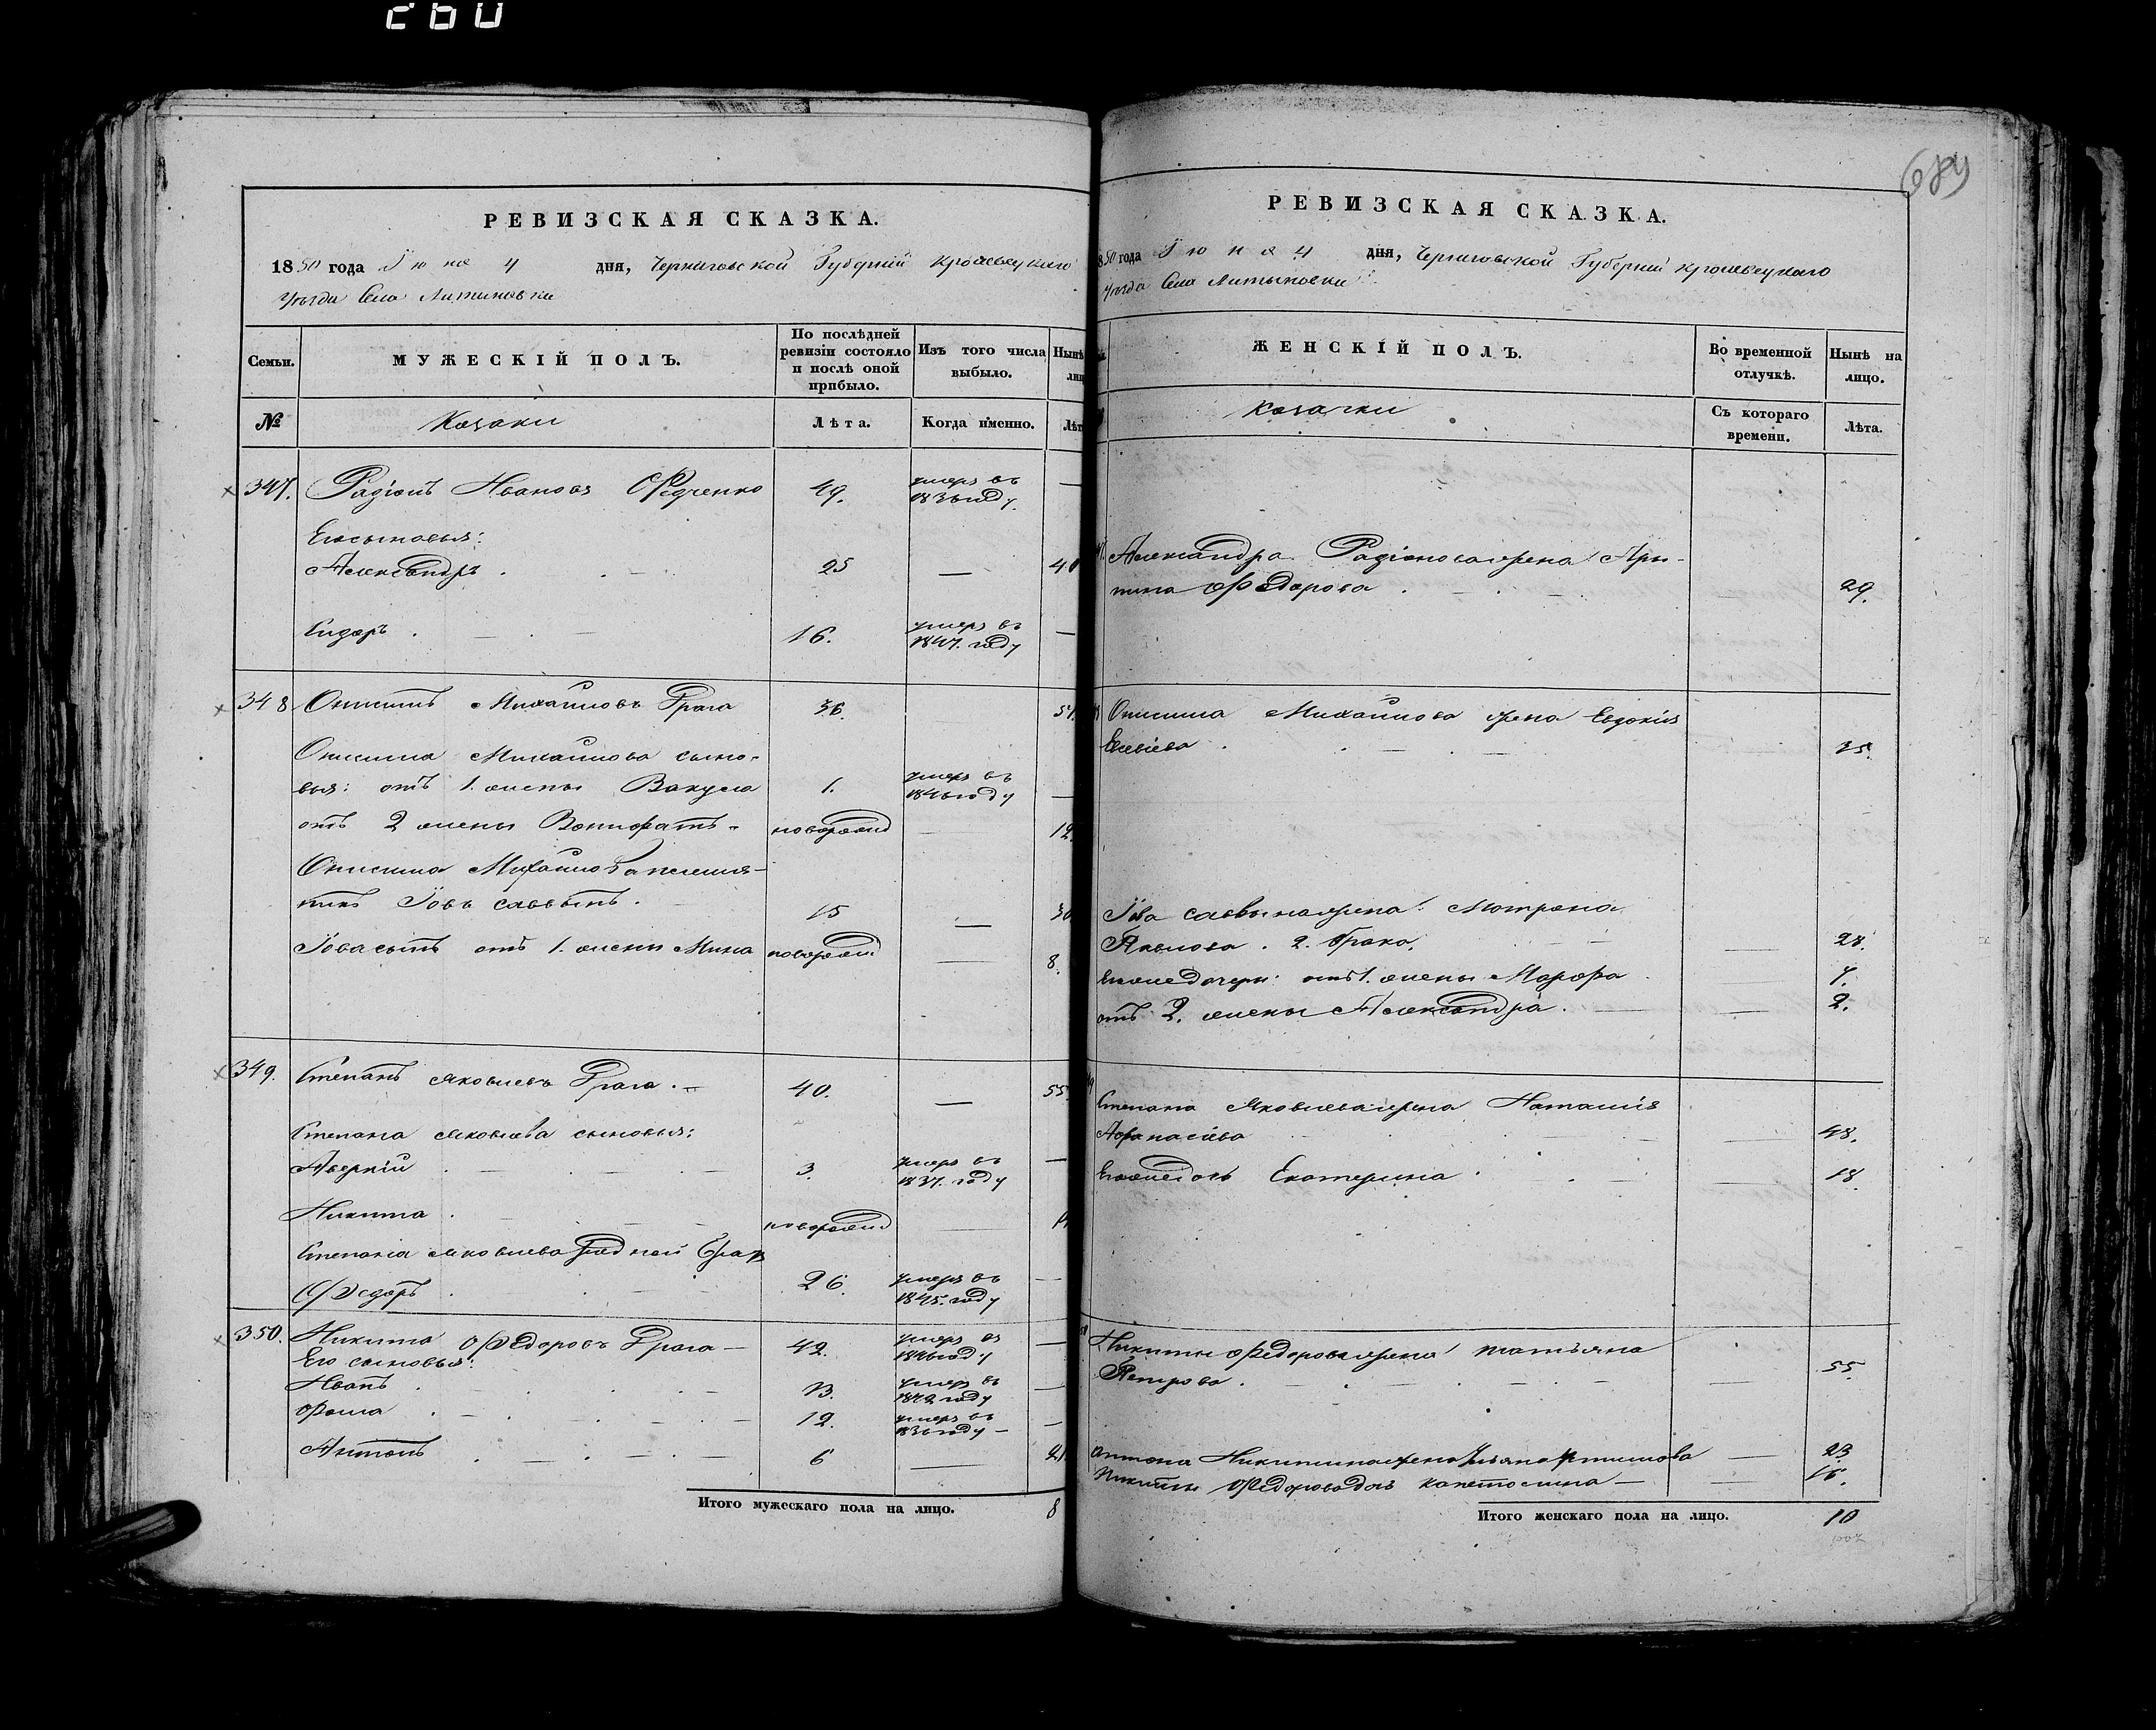 260
689
РЕВИЗСКАЯ СКАЗКА.
1850 года Іюня 4 дня, Черниговской Губерніи Кролевецкаго
уѣзда Села Литвиновки
Семьи. МУЖЕСКІЙ ПОЛЪ. По послѣдней ревизіи состояло и послѣ оной прибыло. Изъ того числа выбыло. Нынѣ
№ Козаки Лѣта. Когда именно. Лѣт
347. Радіонъ Ивановъ Федченко 49. умеръ въ 1836 году.
Его сыновья:
Александръ 25 — 40
Сидоръ 16. умеръ въ 1847. году —
348 Онисимъ Михайловъ Драга 36. 51.
Онисима Михайлова сыно-
вья: отъ 1. жены Вакула 1. умеръ въ 1846 году —
отъ 2 жены новорожд — 12.
Онисима Михайлова племя-
никъ Іовъ Саввинъ. 15 — 30
Іова сынъ отъ 1. жены Мина новорожд — 8.
349. Степанъ Яковлевъ Драга. 40. — 55.
Степана Яковлева сыновья:
Аверкій 3. умеръ въ 1837. году —
Никита новорожд —
Степана Яковлева родной братъ
Федоръ 26. умеръ въ 1845. году —
350. Никита Федоровъ Драга — 42. умеръ въ 1846 году —
Его сыновья:
Иванъ 13. умеръ въ 1842 году —
Фома 12. умеръ въ 1836 году —
Антонъ 6 — 21.
Итого мужескаго пола на лицо. 8
РЕВИЗСКАЯ СКАЗКА.
850 года Іюня 4 дня, Черниговской Губерніи Кролевецкаго
уѣзда Села Литвиновки
ЖЕНСКІЙ ПОЛЪ. Во временной отлучкѣ. Нынѣ на лицо.
Козачки Съ котораго времени. Лѣта.
Александра Радіонова жена Ири-
нина Федорова — 29.
Онисима Михайлова жена Евдокія
Елевіева — 35.
Іова Саввина жена Мотрона
Павлова. 2. брака. — 28.
Его же дочери: отъ 1. жены Марфа — 7.
отъ 2. жены Александра. — 2.
Степана Яковлева жена Наталія
Афанасіева — 48.
Его же дочь Екатерина — 18.
Никиты Федорова жена Татьяна
Петрова. — 55.
Антона Никитина жена Ульяна — 23.
Никиты Федорова дочь Капетолина — 16.
Итого женскаго пола на лицо. 10